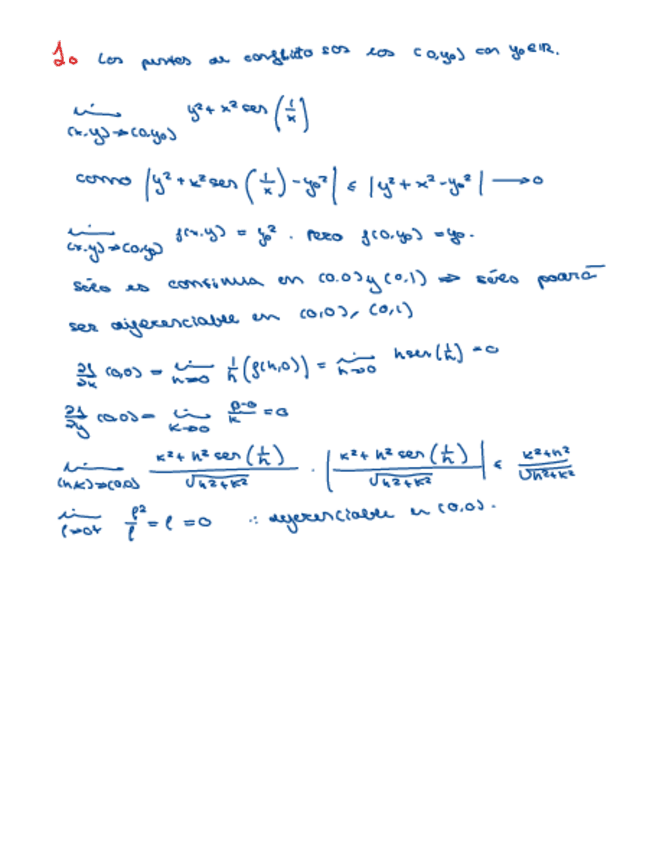 1. Los puntos de conflicto son los (0,y₀) con y₀∈ℝ.
lim (x,y)→(0,y₀) y² + x² sen (1/x)
como |y² + x² sen (1/x) - y₀²| ≤ |y² + x² - y₀²| → 0
lim (x,y)→(0,y₀) f(x,y) = y₀². Pero f(0,y₀) = y₀.
sólo es continua en (0,0) y (0,1) ⇒ sólo podrá
ser diferenciable en (0,0), (0,1)
∂f/∂x (0,0) = lim h→0 1/h (f(h,0)) = lim h→0 h sen(1/h) = 0
∂f/∂y (0,0) = lim k→0 0-0/k = 0
lim (h,k)→(0,0) k² + h² sen (1/h) / √h²+k² . |k² + h² sen (1/h) / √h²+k²| ≤ k²+h² / √h²+k²
lim ρ→0+ ρ²/ρ = ρ = 0 ∴ diferenciable en (0,0).